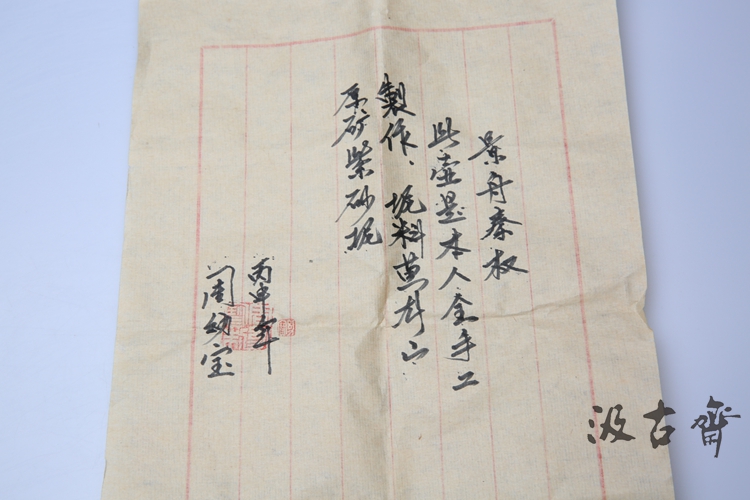 景舟秦权
此壶是本人全手工
製作、坭料黄龙山
原矿紫砂坭
丙申年
周幼宝
汲古齋